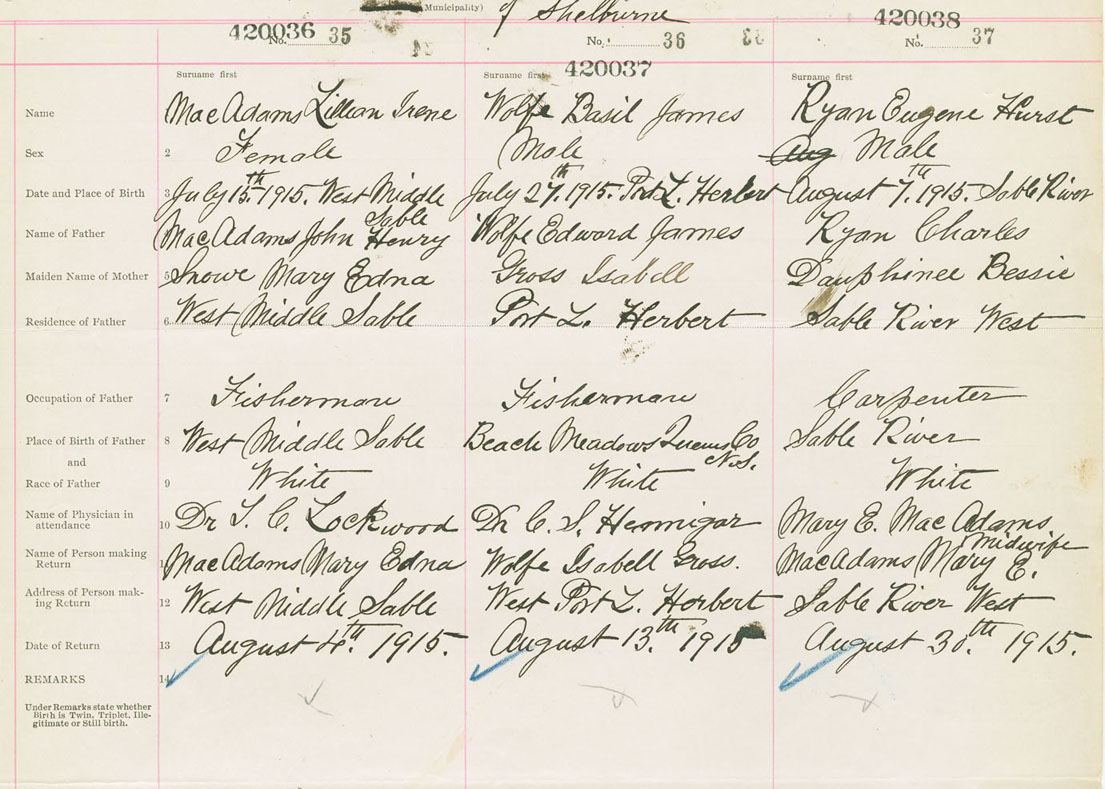 Municipality) of Shelburne
420036 420038
No. 35 No. 36 No. 37
420037
Surname first Surname first Surname first
Name MacAdams Lillian Irene Wolfe Basil James Ryan Eugene Hurst
Sex 2 Female Male Aug Male
Date and Place of Birth 3 July 15th 1915. West Middle Sable July 27th. 1915. Port L. Herbert August 7th. 1915. Sable River
Name of Father MacAdams John Henry Wolfe Edward James Ryan Charles
Maiden Name of Mother 5 Snowe Mary Edna Gross Isabell Dauphinee Bessie
Residence of Father 6 West Middle Sable Port L. Herbert Sable River West
Occupation of Father 7 Fisherman Fisherman Carpenter
Place of Birth of Father 8 West Middle Sable Beach Meadows Queens Co N.S. Sable River
and
Race of Father 9 White White White
Name of Physician in attendance 10 Dr C. Lockwood Dr C. S. Hennigar Mary E. MacAdams Midwife
Name of Person making Return MacAdams Mary Edna Wolfe Isabell Gross. MacAdams Mary E.
Address of Person making Return 12 West Middle Sable West Port L. Herbert Sable River West
Date of Return 13 August 4th. 1915. August 13th. 1915 August 30th. 1915.
REMARKS 14
Under Remarks state whether
Birth is Twin, Triplet, Ille-
gitimate or Still birth.